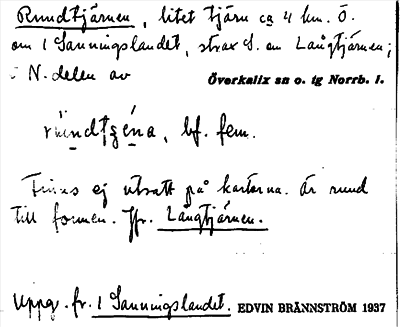 Rundtjärnen, litet tjärn ca 4 km. Ö.
om 1 Sanningslandet, strax S. om Långtjärnen;
i N. delen av Överkalix sn o. tg Norrb. l.
bf. fem.
Finns ej utsatt på kartorna. Är rund
till formen. Jfr. Långtjärnen.
Uppg. fr. 1 Sanningslandet. EDVIN BRÄNNSTRÖM 1937